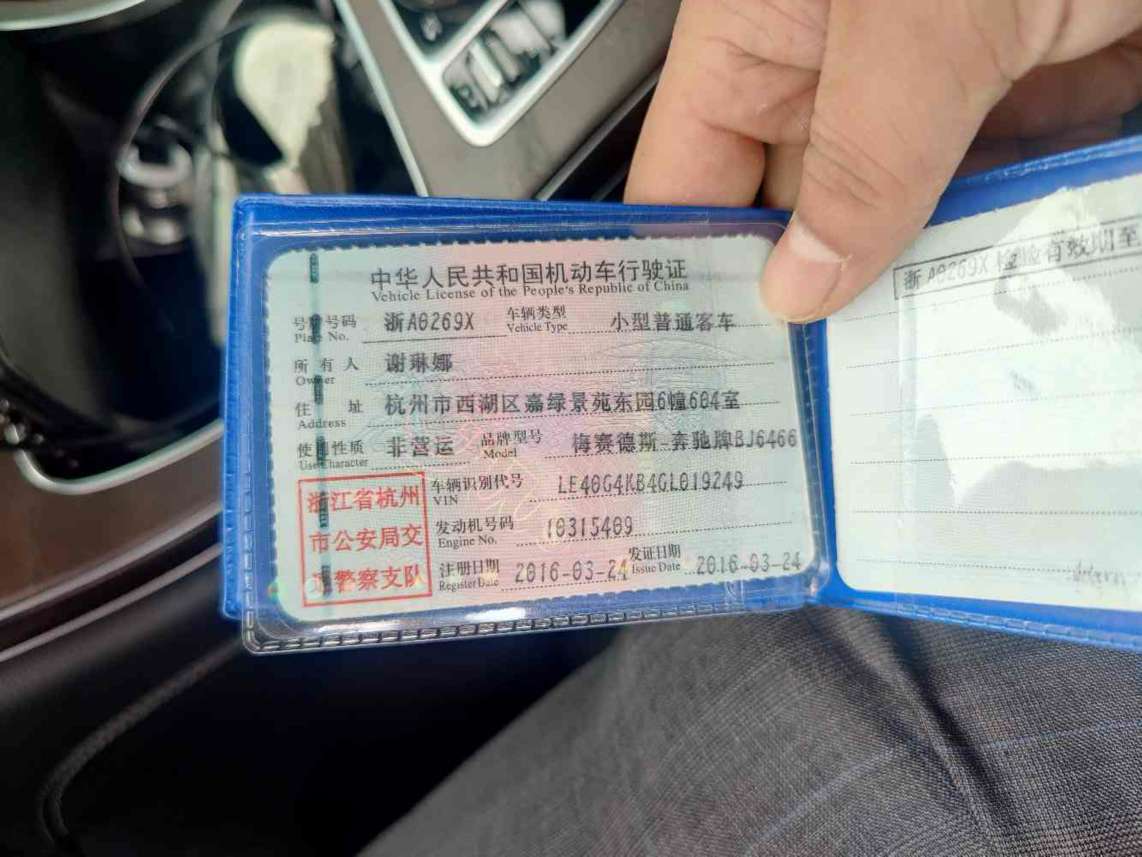 中华人民共和国机动车行驶证
Vehicle License of the People's Republic of China
号牌号码 浙A0269X 车辆类型 小型普通客车
Plate No. Vehicle Type
所有人 谢琳娜
Owner
住址 杭州市西湖区嘉绿景苑东园6幢604室
Address
使用性质 非营运 品牌型号 梅赛德斯-奔驰牌BJ6466
Use Character Model
浙江省杭州
市公安局交
通警察支队
车辆识别代号 LE40G4KB4GL019249
VIN
发动机号码 10315409
Engine No.
注册日期 2016-03-24 发证日期 2016-03-24
Register Date Issue Date
浙A0269X 检验有效期至